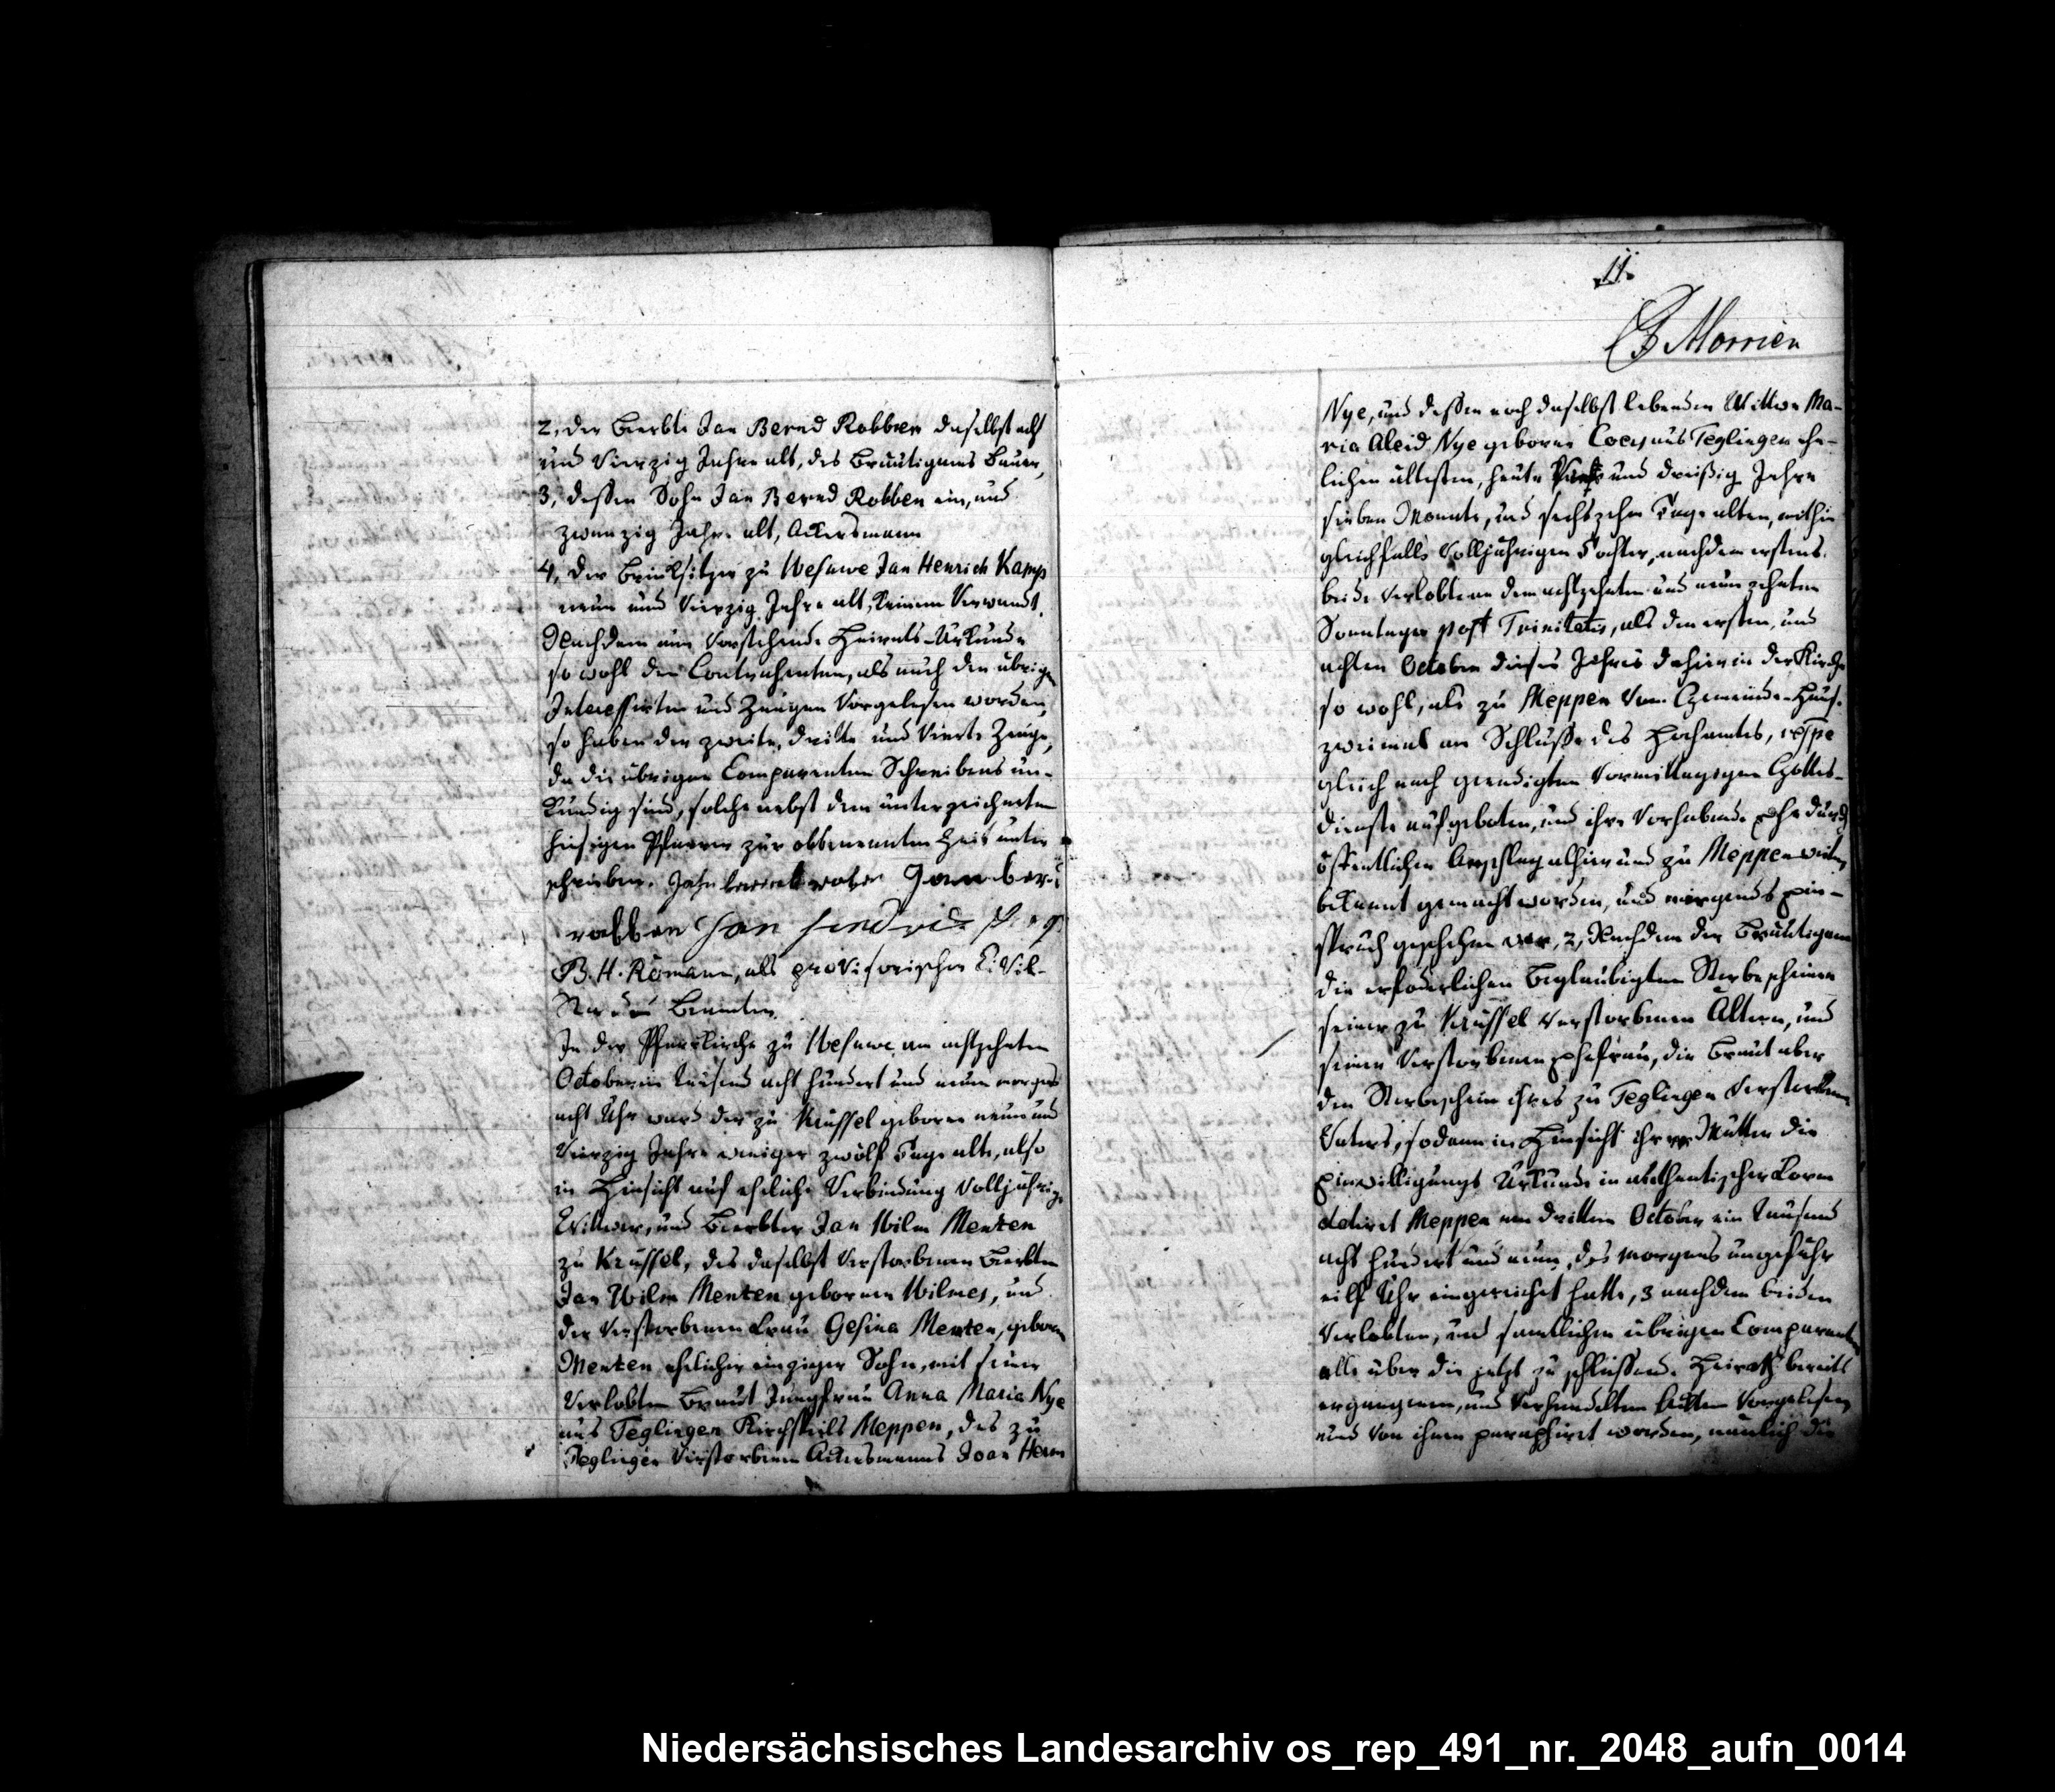 2, der Beerbte Jan Bernd Robben daselbst acht
und Vierzig Jahre alt, des Bräutigams Bauer,
3, dessen Sohn Jan Bernd Robben ein, und
zwanzig Jahre alt, Ackersmann
4, der Brinksitzer zu Wesuwe Jan Henrich Kamp
neun und Vierzig Jahre alt, keinem Verwandt.
Nachdem nun Vorstehende Heirats-Urkunde
so wohl den Contrahenten, als auch den übrigen
Interessirten und Zeugen Vorgelesen worden,
so haben der zweite, dritte und Vierte Zeuge,
da die übrigen Comparenten Schreibens un-
kundig sind, solche nebst dem unterzeichneten
hiesigen Pfarrer zur obbenennten Zeit unter
schrieben. Jan berend Jan bernd
robben Jan hendrick
B. H. Römann, als provisorischer Civil-
Beamter.
In der Pfarrkirche zu Wesuwe am achtzehnten
October ein tausend acht hundert und neun morgens
acht Uhr ward der zu Krüssel geborne neun und
Vierzig Jahre weniger zwölf Tage alte, also
in Hinsicht auf eheliche Verbindung Volljährige
Wittwer, und Beerbter Jan Wilm Menten
zu Krüssel, des daselbst Verstorbenen Beerbten
Jan Wilm Menten gebornen Wilmes, und
der Verstorbenen Frau Gesina Menten, geborne
Menten ehelicher einziger Sohn, mit seiner
Verlobten Braut Jungfrau Anna Maria Nye
aus Teglingen Kirchspiels Meppen, des zu
Teglingen Verstorbenen Ackersmanns Joan Herm
11.
Morrien
Nye, und dessen noch daselbst lebenden Wittwe Ma-
ria Aleid Nye geborne Coers aus Teglingen ehe-
lichen ältesten, heute und dreißig Jahre
sieben Monate, und sechszehn Tage alten, mithin
gleichfalls Volljährigen Tochter, nachdem erstens
beide Verlobte an dem achtzehnten und neunzehnten
Sonntage post Trinitatis, als den ersten, und
achten October dieses Jahres dahier in der Kirche
so wohl, als zu Meppen Vom Gemeinde-Hause
zweimal am Schlusse des Hochamtes, respe
gleich nach geendigtem Vormittagigen Gottes-
dienste aufgeboten, und ihre Vorhabende Ehe durch
öffentlichen Anschlag alhier und zu Meppen
bekannt gemacht worden, und nirgends Ein-
spruch geschehen war, 2, Nachdem der Bräutigam
die erforderlichen Beglaubigten Sterbescheine
seiner zu Krüssel Verstorbenen Ältern, und
seiner Verstorbenen Ehefrau, die Braut aber
den Sterbeschein ihres zu Teglingen Verstorbenen
Vaters, sodann in Hinsicht ihrer Mutter die
Einwilligungs Urkunde in authentischer Form
datirt Meppen am dritten October ein tausend
acht hundert und neun, des morgens ungefähr
eilf Uhr eingereichet hatte, 3 nachdem beiden
Verlobten, und samtlichen übrigen Comparenten
alle über die jetzt zu schliessende Heirath bereits
ergangenen, und Verhandelten Acten Vorgelesen,
und Von ihnen paraphiret worden, nemlich die
Niedersächsisches Landesarchiv os_rep_491_nr._2048_aufn_0014